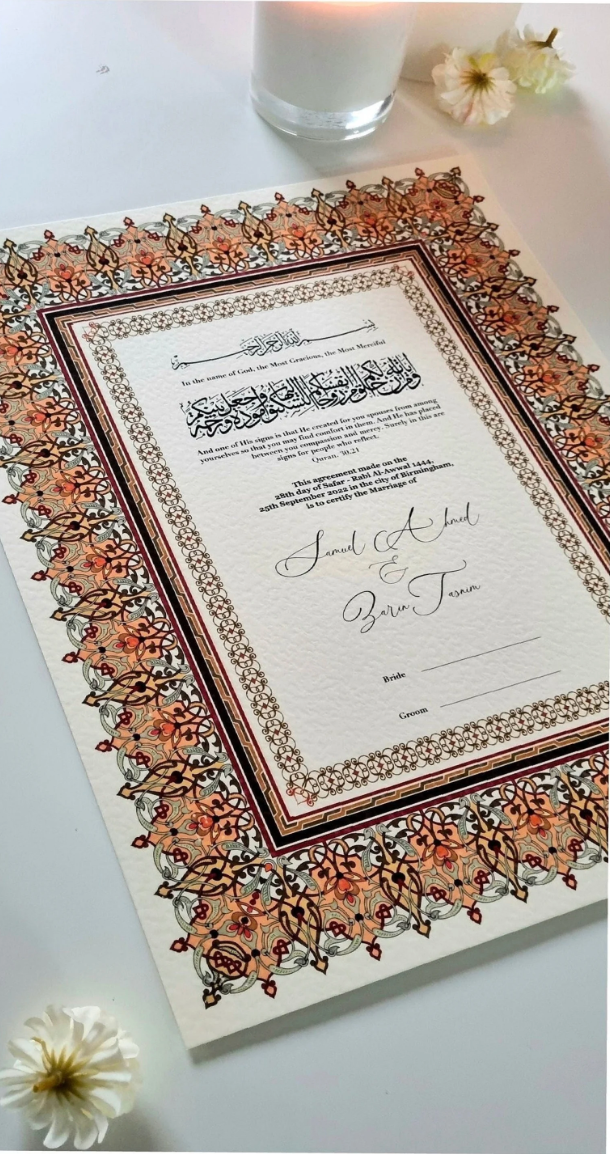 بسم الله الرحمن الرحيم
In the name of God, the Most Gracious, the Most Merciful
ومن آياته أن خلق لكم من أنفسكم أزواجا لتسكنوا إليها وجعل بينكم مودة ورحمة
And one of His signs is that He created for you spouses from among
yourselves so that you may find comfort in them. And He has placed
between you compassion and mercy. Surely in this are
signs for people who reflect.
Quran, 30.21
This agreement made on the
28th day of Safar - Rabi Al-Awwal 1444,
25th September 2022 in the city of Birmingham,
is to certify the Marriage of
Samuel Ahmed
&
Zarin Tasnim
Bride
Groom